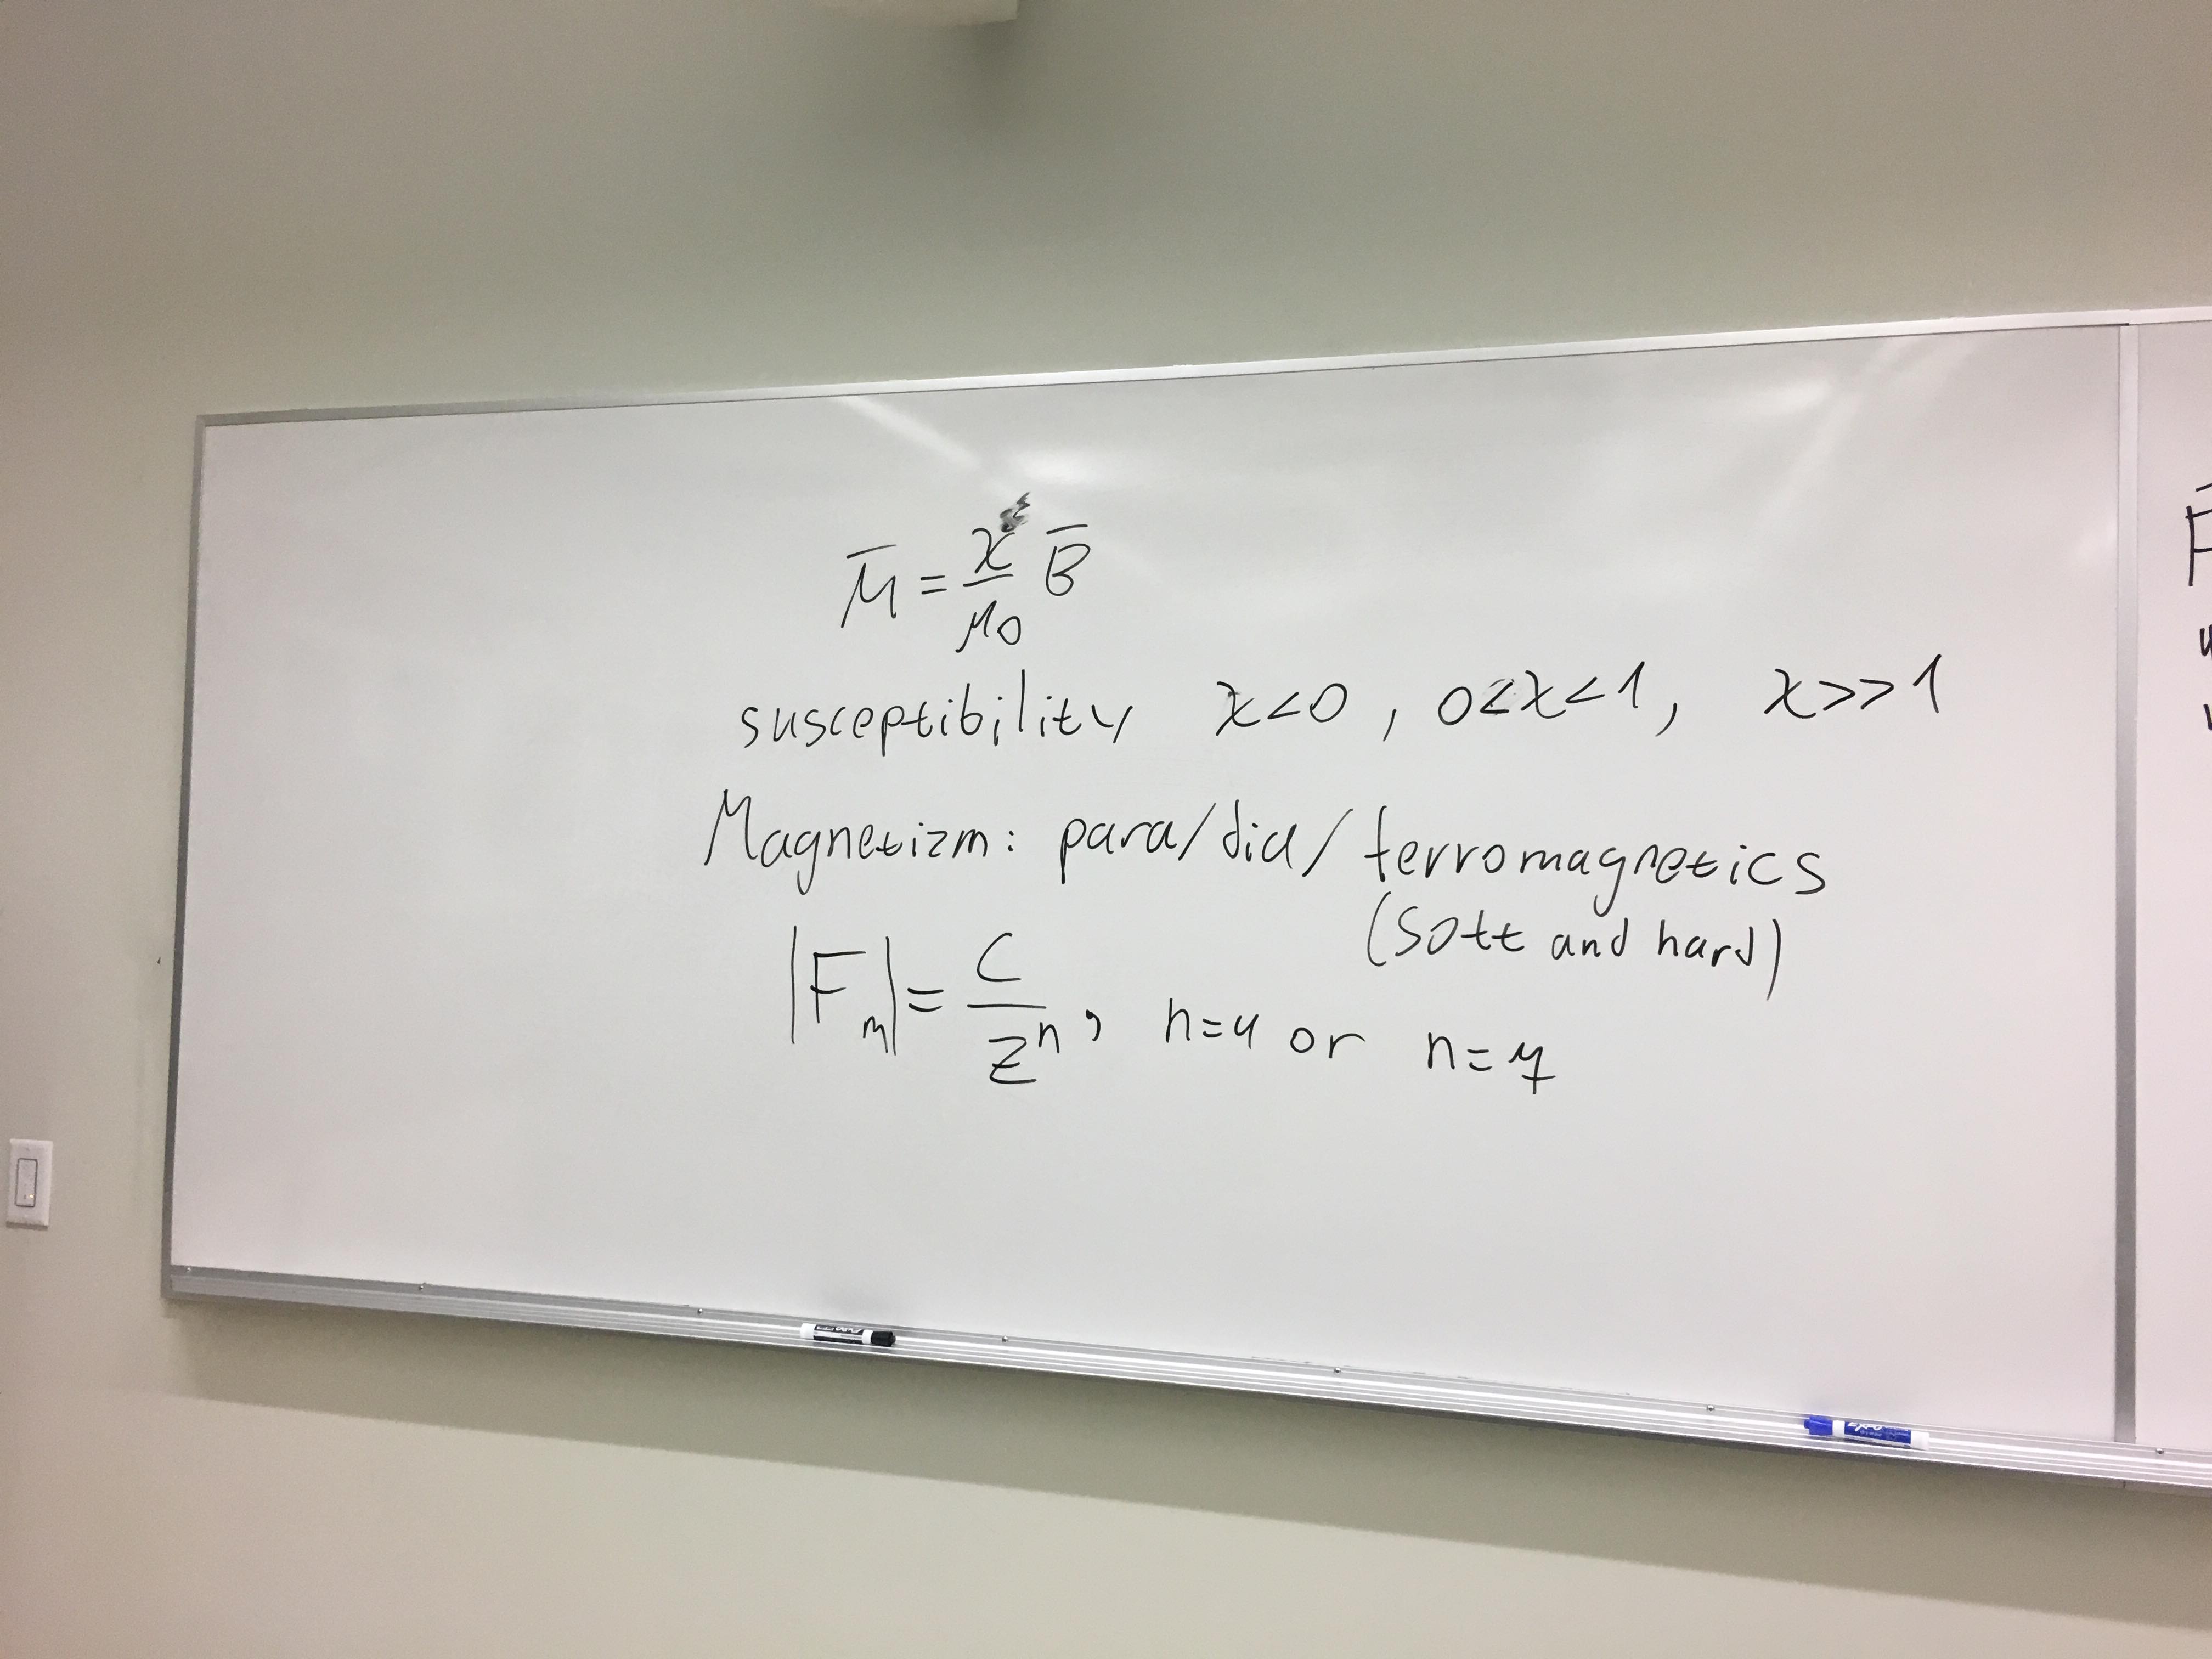 M̄ = χ/μ₀ B̄
susceptibility χ<0 , 0<χ<1, χ>>1
Magnetizm: para/dia/ferromagnetics
(soft and hard)
|Fₘ| = C/zⁿ, n=4 or n=7
F